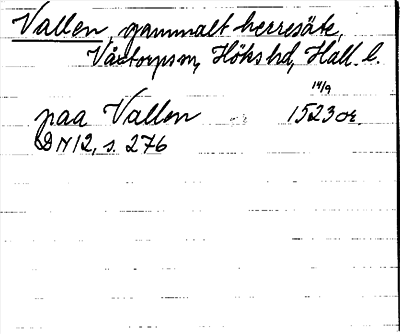 Vallen, gammalt herresäte,
Våxtorps sn, Höks hd, Hall. l.
14/9
paa Vallen 1523 or.
DN 12, s. 276